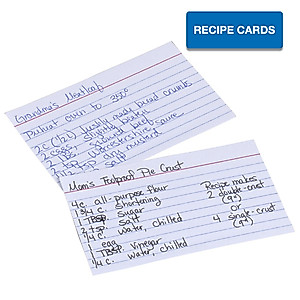 RECIPE CARDS
Grandma's Meatloaf
Preheat oven to 350°
2 C (16z) freshly made bread crumbs
2 eggs, slightly beaten
2 TBS. Worcestershire sauce
dry mustard
Mom's Foolproof Pie Crust
4 c. all-purpose flour
1 3/4 c. shortening
1 TBSP. Sugar
2 tsp. salt
water, chilled
1 egg
1 TBSP. Vinegar
water, chilled
Recipe makes
2 double-crust
(9")
or
4 single-crust
(9")